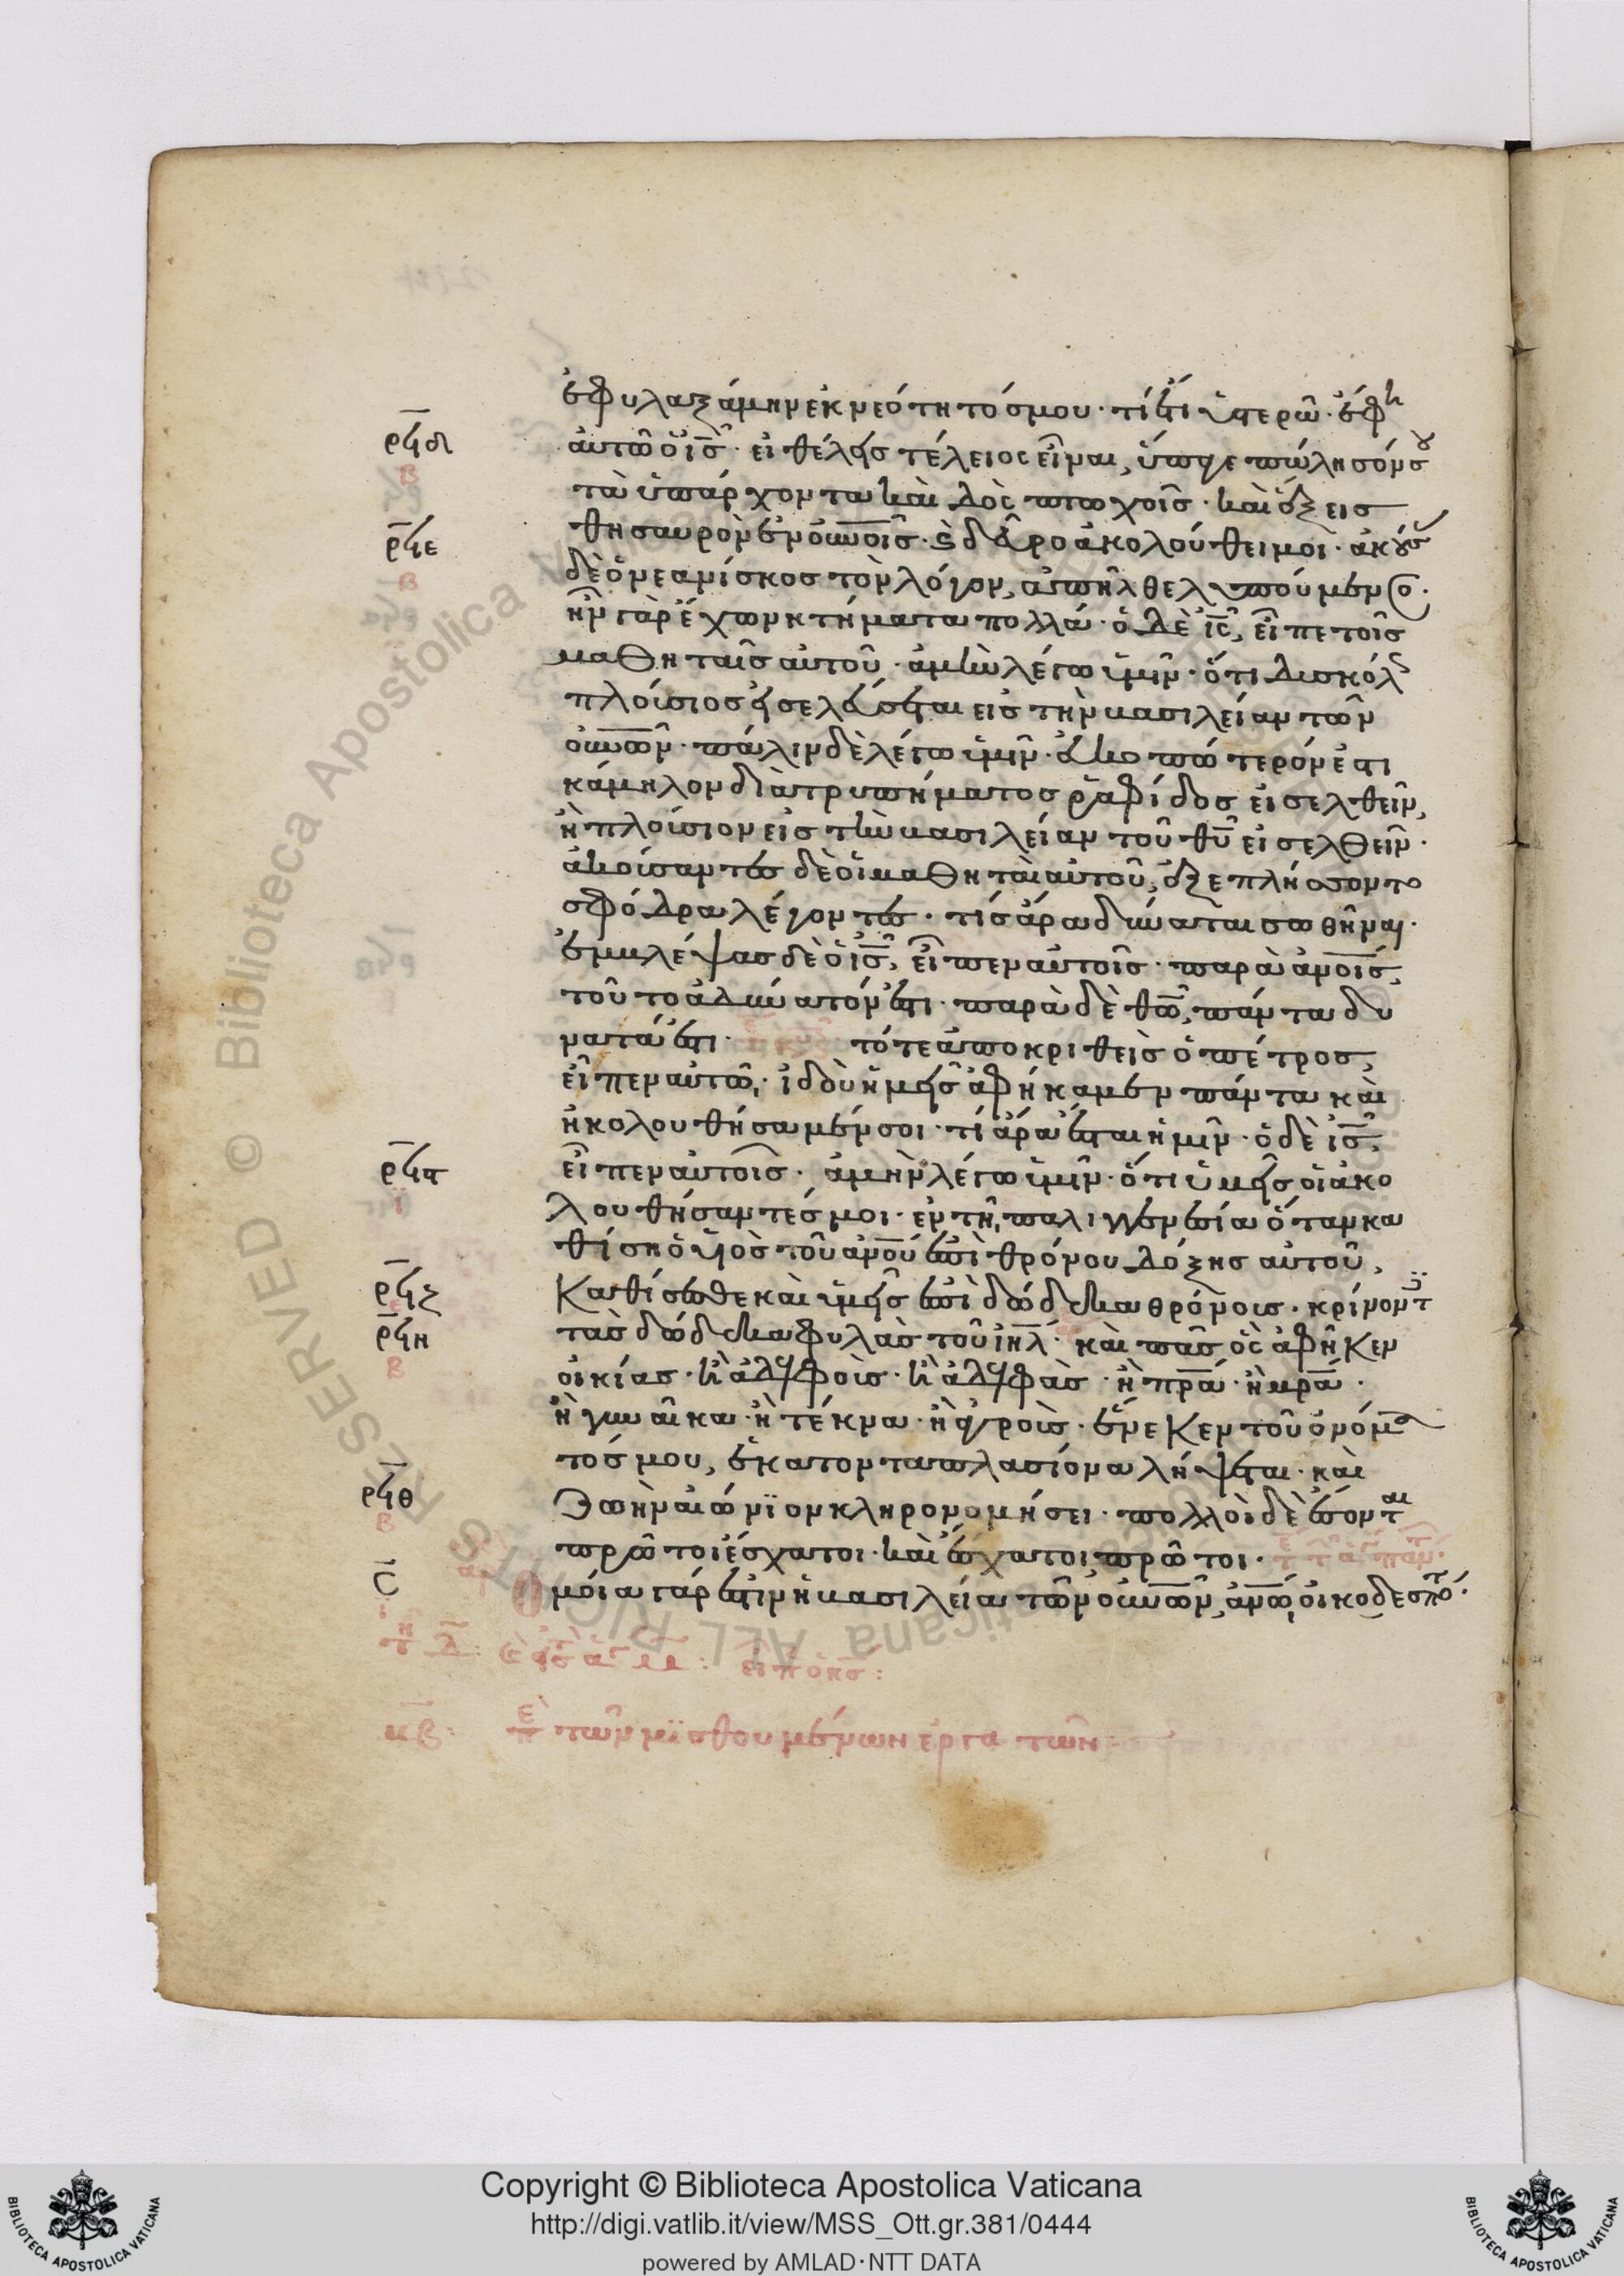 ἐφυλαξάμην ἐκ νεότητός μου· τί ἔτι ὑστερῶ· ἔφη
ρϟδ
αὐτῶ ὁ ἰς̅· εἰ θέλεις τέλειος εἶναι, ὕπαγε πώλησόν σου
β
τὰ ὑπάρχοντα καὶ δὸς πτωχοῖς· καὶ ἕξεις
ρϟε
θησαυρὸν ἐν οὐνοῖς· καὶ δεῦρο ἀκολούθει μοι· ἀκούσας
β
δὲ ὁ νεανίσκος τὸν λόγον, ἀπῆλθε λυπούμενος·
ἦν γὰρ ἔχων κτήματα πολλά· ὁ δὲ ἰς̅, εἶπε τοῖς
μαθηταῖς αὐτοῦ· ἀμὴν λέγω ὑμῖν· ὅτι δυσκόλως
πλούσιος εἰσελεύσεται εἰς τὴν βασιλείαν τῶν
οὐνῶν· πάλιν δὲ λέγω ὑμῖν· εὐκοπώτερόν ἐστι
κάμηλον διὰ τρυπήματος ῥαφίδος εἰσελθεῖν,
ἢ πλούσιον εἰς τὴν βασιλείαν τοῦ θυ̅ εἰσελθεῖν·
ἀκούσαντες δὲ οἱ μαθηταὶ αὐτοῦ, ἐξεπλήσσοντο
σφόδρα λέγοντες· τίς ἄρα δύναται σωθῆναι·
ἐμβλέψας δὲ ὁ ἰς̅, εἶπεν αὐτοῖς· παρὰ ἀνοῖς,
τοῦτο ἀδύνατόν ἐστι· παρὰ δὲ θῶ̅, πάντα δυ
νατά ἐστι· τότε ἀποκριθεὶς ὁ πέτρος,
εἶπεν αὐτῶ· ἰδοὺ ἡμεῖς ἀφήκαμεν πάντα καὶ
ἠκολουθήσαμέν σοι· τί ἄρα ἔσται ἡμῖν· ὁ δὲ ἰς̅,
ρϟϛ
εἶπεν αὐτοῖς· ἀμὴν λέγω ὑμῖν· ὅτι ὑμεῖς οἱ ἀκο
ϊ
λουθήσαντές μοι· ἐν τῆ παλιγγενεσία ὅταν κα
θίση ὁ υἱὸς τοῦ ἀνου̅ ἐπὶ θρόνου δόξης αὐτοῦ,
ρϟζ
Καθίσεσθε καὶ ὑμεῖς ἐπὶ δώδεκα θρόνους· κρίνοντες
ρϟη
τὰς δώδεκα φυλὰς τοῦ ιηλ̅· καὶ πᾶς ὃς ἀφῆκεν
β
οἰκίας· ἢ ἀδελφοὺς· ἢ ἀδελφὰς· ἢ πρα̅· ἢ μρα̅·
ἢ γυναῖκα· ἢ τέκνα· ἢ ἀγροὺς· ἕνεκεν τοῦ ὀνόμα
τός μου, ἑκατονταπλασίονα λήψεται· καὶ
ρϟθ
ζωὴν αἰώνϊον κληρονομήσει· πολλοὶ δὲ ἔσονται
β
πρῶτοι ἔσχατοι· καὶ ἔσχατοι πρῶτοι·
σ̅
Ὁμοία γάρ ἐστιν ἡ βασιλεία τῶν οὐνῶν, ἀνῶ, οἰκοδεσπότ·
εἶπ ὁ κς̅:
κβ: περὶ τῶν μϊσθουμένων ἐργατῶν
Copyright © Biblioteca Apostolica Vaticana
http://digi.vatlib.it/view/MSS_Ott.gr.381/0444
powered by AMLAD·NTT DATA
BIBLIOTECA APOSTOLICA VATICANA
BIBLIOTECA APOSTOLICA VATICANA